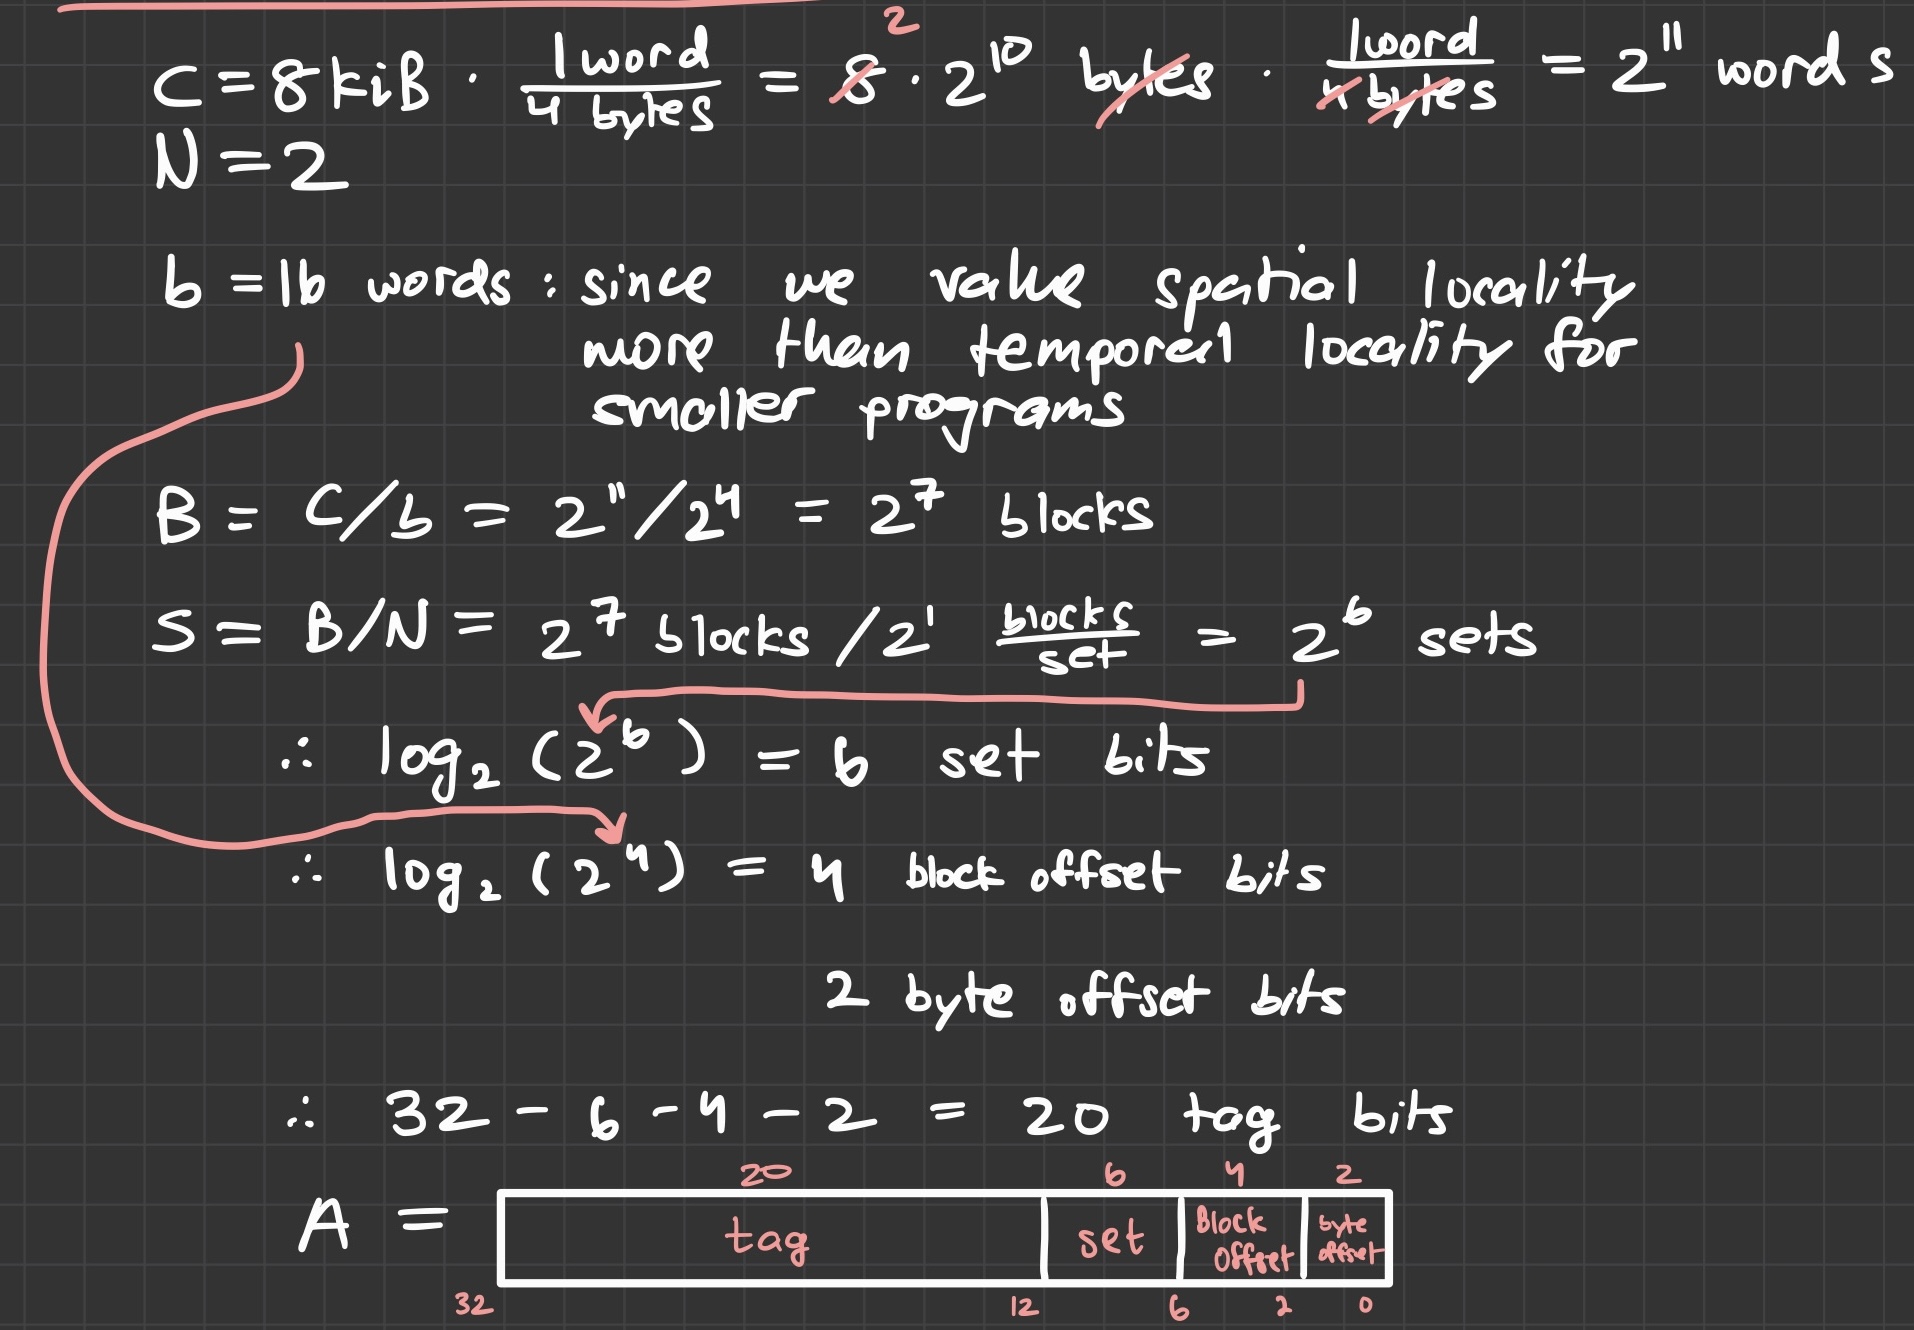 C = 8 kiB · 1 word / 4 bytes = 8 2 · 2^10 bytes · 1 word / 4 bytes = 2^11 words
N = 2
b = 16 words : since we value spatial locality
more than temporal locality for
smaller programs
B = C/b = 2^11 / 2^4 = 2^7 blocks
S = B/N = 2^7 blocks / 2^1 blocks/set = 2^6 sets
∴ log₂ (2^6) = 6 set bits
∴ log₂ (2^4) = 4 block offset bits
2 byte offset bits
∴ 32 - 6 - 4 - 2 = 20 tag bits
20 6 4 2
A = tag set Block offset byte offset
32 12 6 2 0